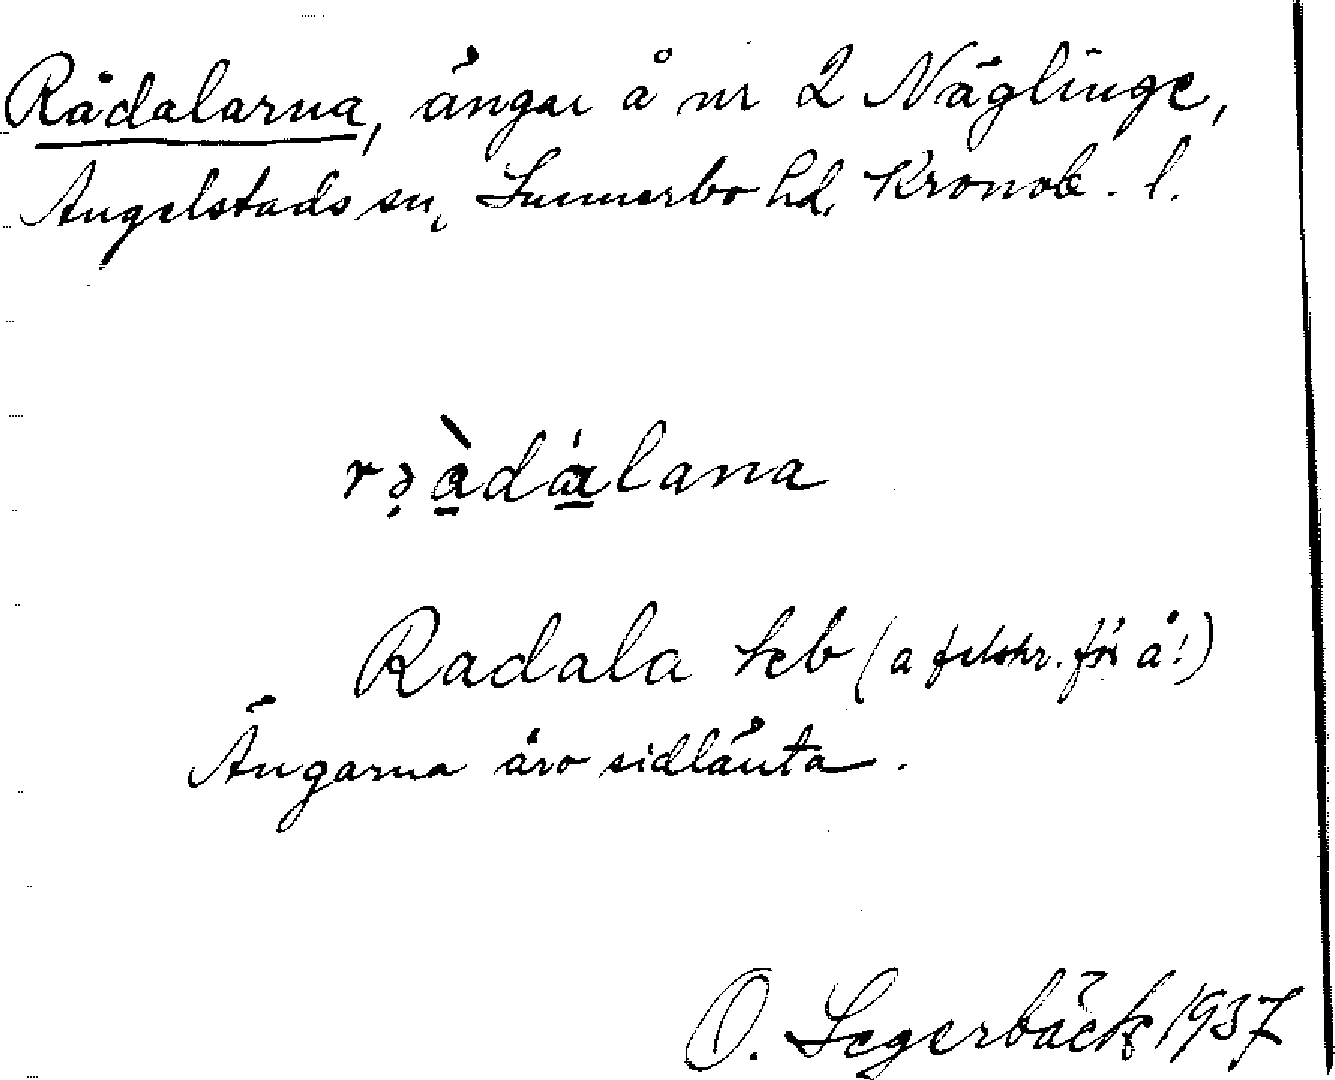 Rådalarna, ängar å nr 2 Näglinge,
Angelstads sn, Sunnerbo hd, Kronob. l.
rə̣à̱da̱̍lana
Radala hcb (a felskr. för å!)
Ängarna äro sidlänta.
O. Segerbäck 1937